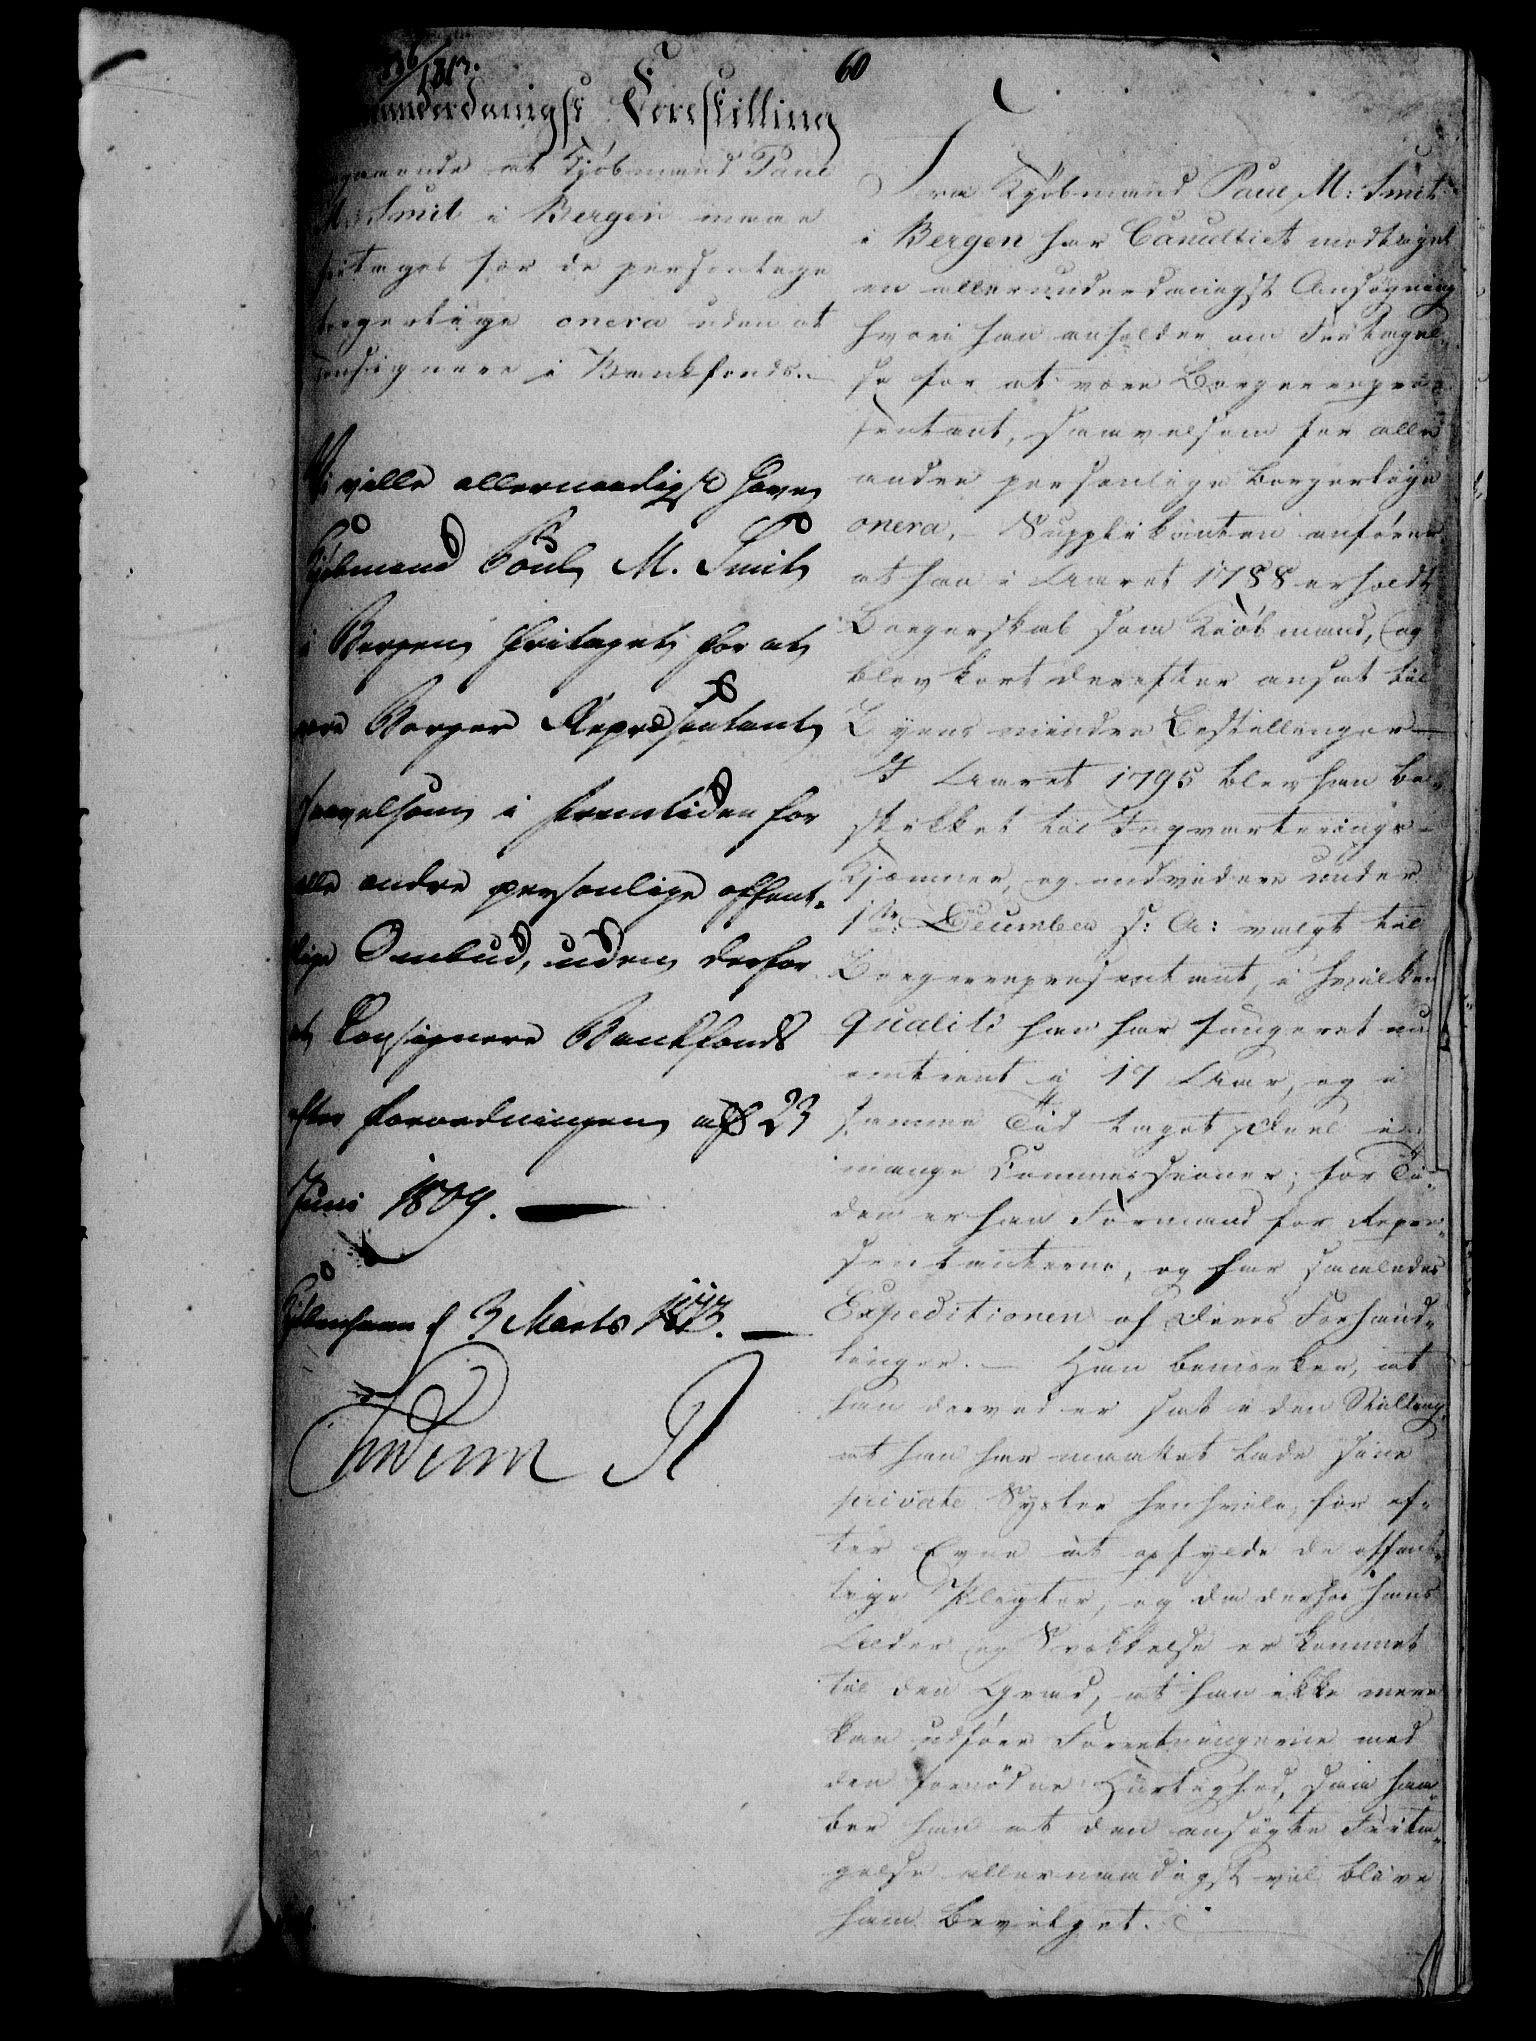 36/1813.
60
underdanigst Forestilling
angaaende at Kjöbmand Paul
M: Smit i Bergen maae
fritages for de personlige
borgerlige onera uden at
consignere i Bankfonds.
Vi ville allernaadigst have
Kjöbmand Poul M. Smit
i Bergen fritaget for at
være Borger Repræsentant
saavelsom i fremtiden for
alle andre personlige offent-
lige Ombud, uden derfor
at Consignere Bankfonds
efter forordningen af 23
Juni 1809. —
Kjöbenhavn d 3 Marts 1813. —
Frederik R
Fra Kjöbmand Paul M: Smit
i Bergen har Cancelliet modtaget
en allerunderdanigst Ansøgning
hvori han anholder om Fritagel-
se for at være Borgerrepræ-
sentant, saavelsom for alle
andre personlige borgerlige
onera. – Supplikanten anfører
at han i Aaret 1788 erholdt
Borgerskab som Kiöbmand, og
blev kort derefter ansat til
Byens mindre Bestillinger —
I Aaret 1795 blev han be-
skikket til Inqvarterings-
Kjæmner, og endvidere under
1ste December s: A: valgt til
Borgerrepresentant, i hvilken
qualité han har fungeret nu
omtrent i 17 Aar, og i
samme Tid taget Deel i
mange Commissioner; for Ti-
den er han Formand for Repre-
sentanterne, og har saaledes
Expeditionen af deres Forhand-
linger. — Han bemærker, at
han derved er sat i den Stilling,
at han har maattet lade sine
private Sysler henhvile, for ef-
ter Evne at opfylde de offent-
lige Pligter, og da derhos hans
Alder og Svækkelse er kommet
til den Grad, at han ikke mere
kan udføre Forretningerne med
den fornödne Hurtighed, saa haa-
ber han at den ansögte Frita-
gelse allernaadigst vil blive
ham bevilget.